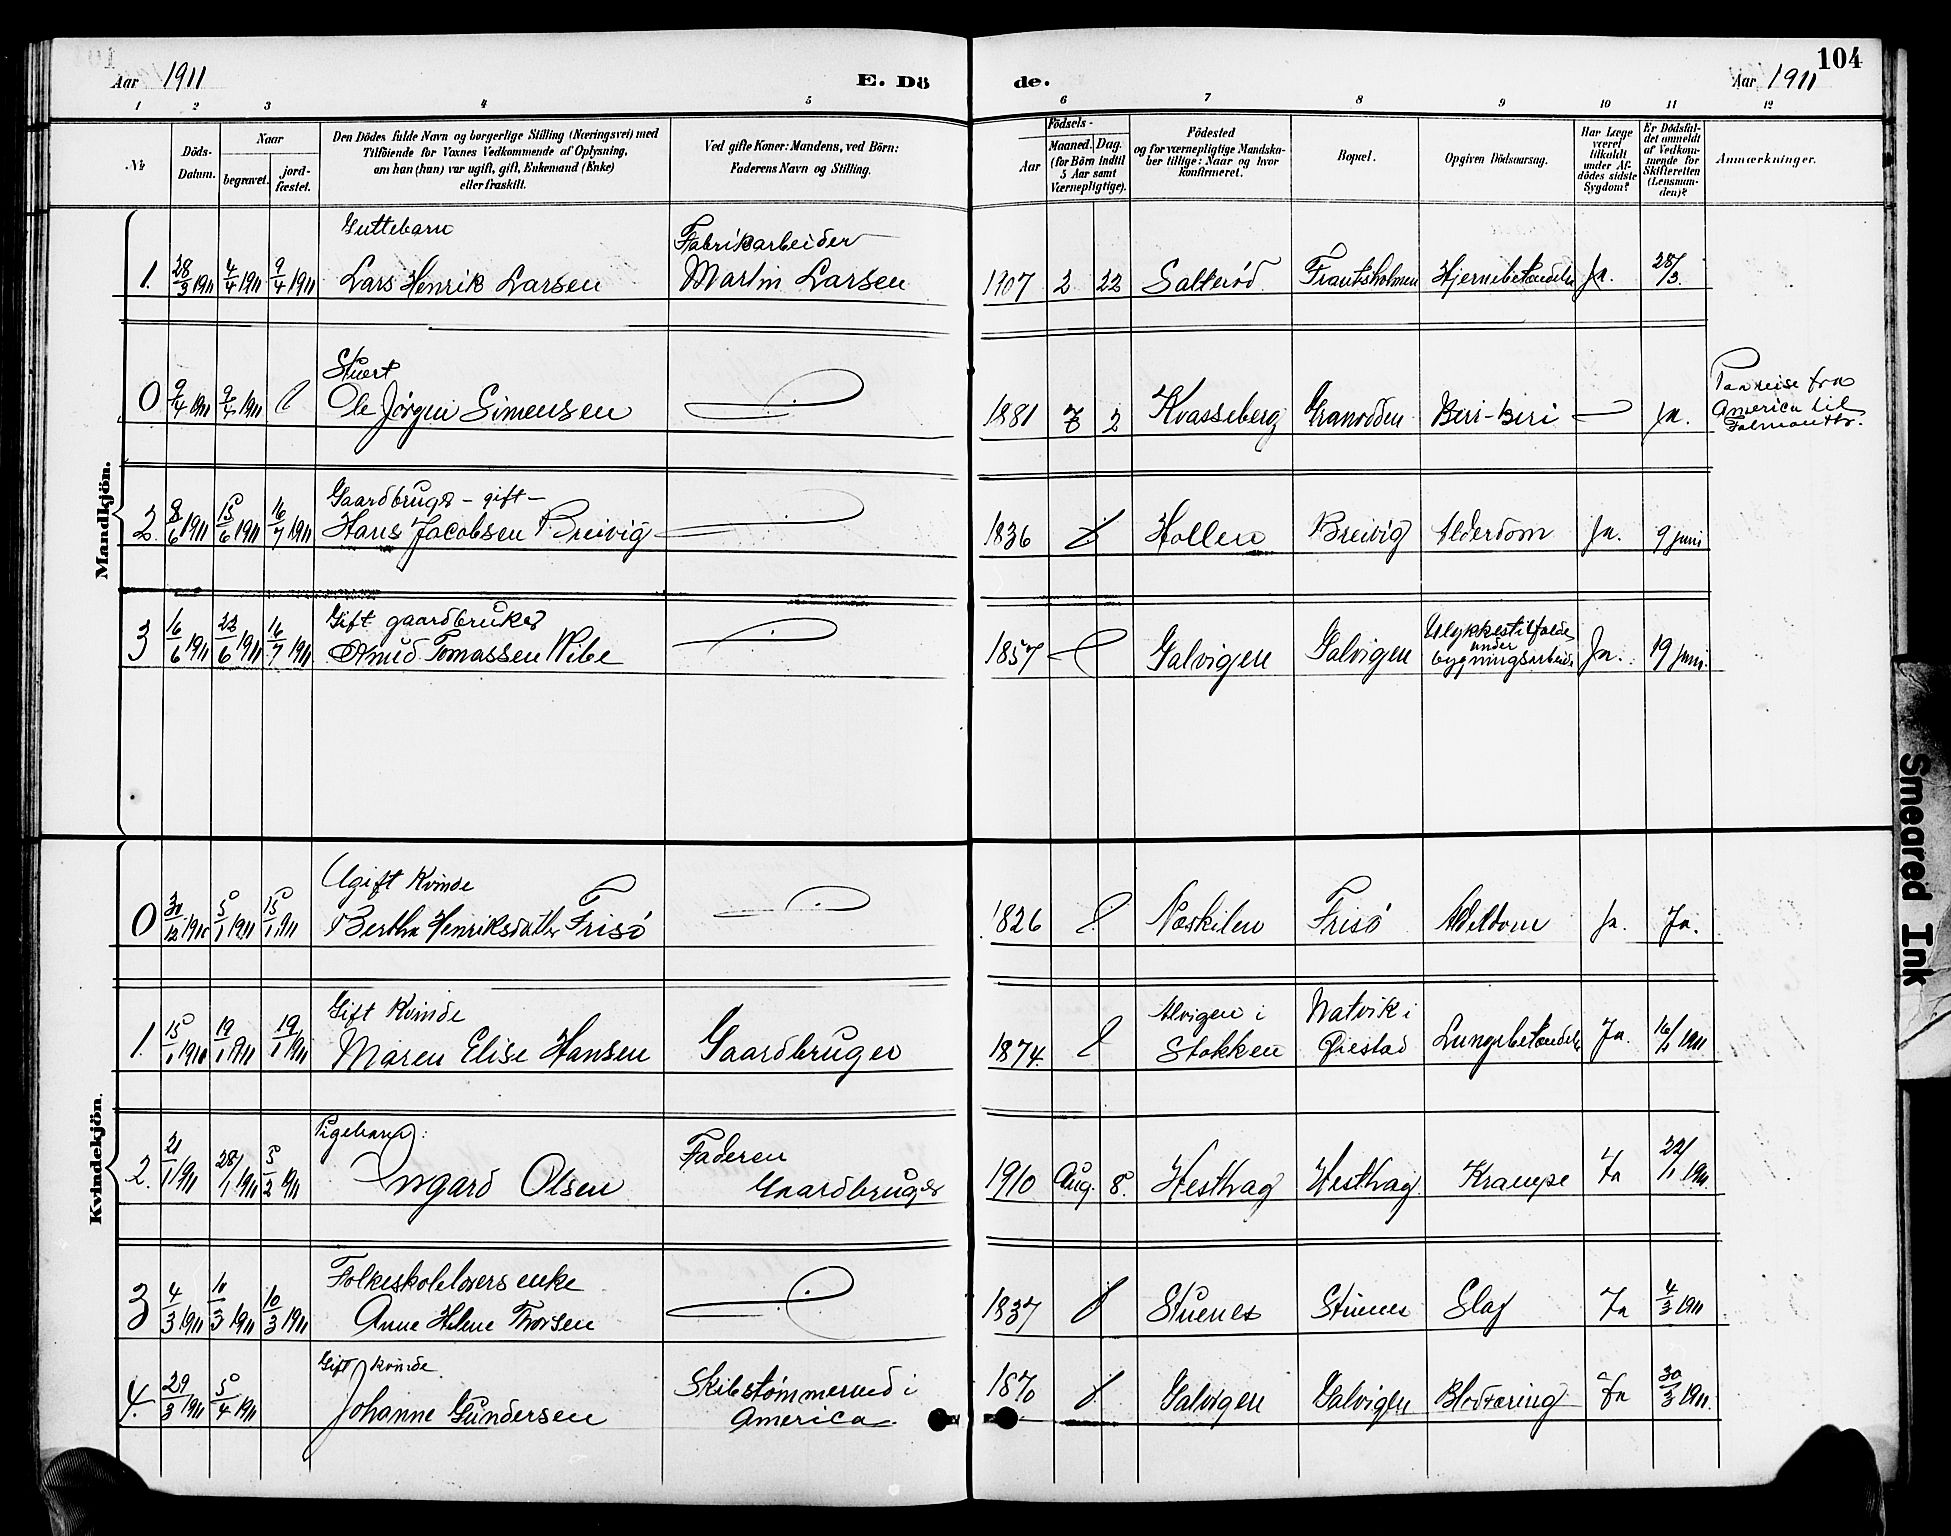 104
Aar 1911
E. Dö
de.
Aar 1911
1 2 3 4 5 6 7 8 9 10 11 12
Nr
Döds-
Datum.
Naar
begravet.
jord-
fæstet.
Den Dödes fulde Navn og borgerlige Stilling (Næringsvei) med
Tilföiende for Voxnes Vedkommende af Oplysning,
om han (hun) var ugift, gift, Enkemand (Enke)
eller fraskilt.
Ved gifte Koner: Mandens, ved Börn:
Faderens Navn og Stilling.
Födsels-
Aar
Maaned. Dag.
(for Börn indtil
5 Aar samt
Værnepligtige).
Födested
og for værnepligtige Mandska-
ber tillige: Naar og hvor
konfirmeret.
Bopæl.
Opgiven Dödsaarsag.
Har Læge
været
tilkaldt
under Af-
dödes sidste
Sygdom?
Er Dödsfal-
det anmeldt
af Vedkom-
mende for
Skifteretten
(Lensman-
den)?
Anmærkninger.
Mandkjön.
Guttebarn
Fabrikarbeider
1. 28/3 1911 4/4 1911 9/4 1911 Lars Henrik Larsen Martin Larsen 1907 2 22 Salterød Frantsholmen Hjernebetændelse Ja. 28/3.
Stuert
0 9/4 1911 9/4 1911 Ole Jörgen Simensen 1881 7 2 Kvasseberg Granodden Beri-Beri — Ja.
Paa reise fra
America til
Falmouth.
Gaardbruger - gift -
2. 8/6 1911 15/6 1911 16/7 1911 Hans Jacobsen Breivig 1836 Hollen Breivig Alderdom Ja. 9 juni
Gift gaardbruker
3 16/6 1911 22/6 1911 16/7 1911 Knud Tomassen Vibe 1857 Galvigen Galvigen
Ulykkestilfælde
under
bygningsarbeide
Ja. 19 juni
Kvindekjön.
Ugift Kvinde
0 30/12 1910 5/1 1911 15/1 1911 Bertha Henriksdatter Frisö 1826 Næskilen Frisö Alderdom Ja. Ja.
Gift Kvinde
1. 15/1 1910 19/1 1911 19/1 1911 Maren Elise Hansen Gaardbruger 1874.
Alvigen i
Stokken
Natvik i
Øiestad
Lungebetændelse Ja. 16/1 1911
Pigebarn:
2. 21/1 1911 28/1 1911 5/2 1911 Ingard Olsen
Faderen
Gaardbruger
1910 Aug. 8. Hesthag Hesthag Krampe Ja 22/1 1911.
Folkeskolelærers enke
3 4/3 1911 10/3 1911 10/3 1911 Anne Helene Thorsen 1837 Stuenes Stuenes Slag Ja 4/3 1911
Gift kvinde
4. 29/3 1911 5/4 1911 Johanne Gundersen
Skibstømmermand i
America.
1870 Galvigen Galvigen Blodtæring Ja 30/3 1911.
Smeared Ink